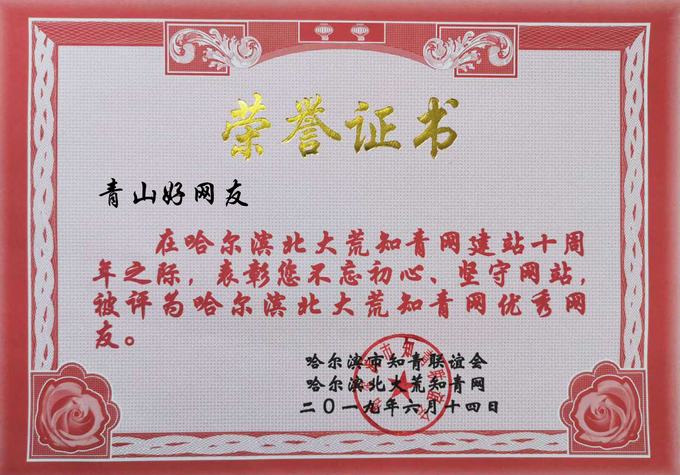 荣誉证书
青山好网友
在哈尔滨北大荒知青网建站十周
年之际，表彰您不忘初心、坚守网站，
被评为哈尔滨北大荒知青网优秀网
友。
哈尔滨市知青联谊会
哈尔滨北大荒知青网
二〇一九年六月十四日